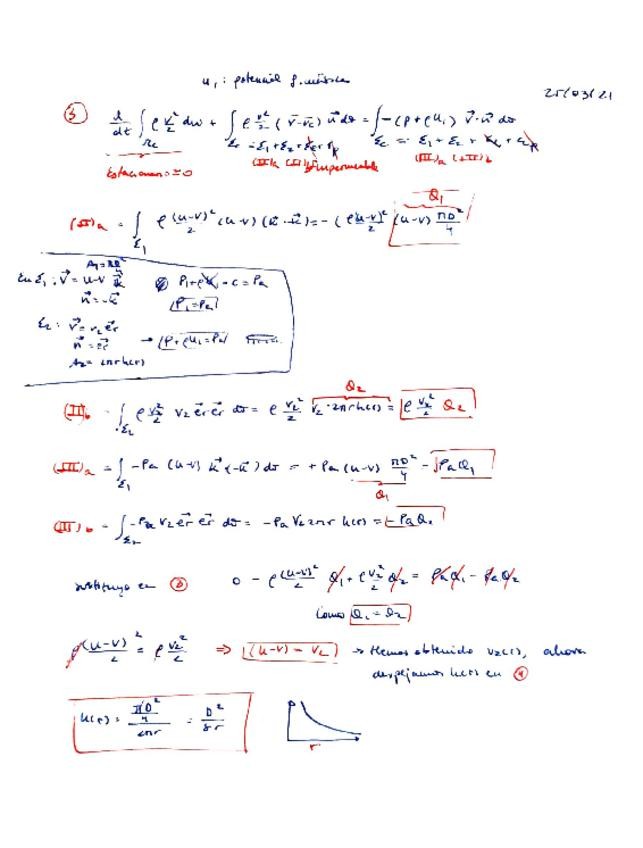 U₁: potencial f. másica
25/03/21
③ d/dt ∫_Ωc ρ v²/2 dω + ∫_Σc ρ v²/2 (v̄ - v̄c) n̄ dσ = ∫_Σc -(p + ρU₁) v̄·n̄ dσ
Estacionario = 0
Σc = Σ₁ + Σ₂ + Σc + Σp
(II)a (II)b Impermeable
Σc = Σ₁ + Σ₂ + Σc + Σp
(III)a (III)b
(II)a = ∫_Σ₁ ρ (u-v)²/2 (u-v) (k̄·-k̄) = - (ρ(u-v)²/2) (u-v) πD²/4
Q₁
A₁ = πD²/4
En Σ₁: v̄ = u-v k̄
n̄ = -k̄
P₁ + ρU₁ = C = Pa
P₁ = Pa
Σ₂: v̄ = v₂ ēr
n̄ = ēr
→ P + ρU₁ = Pa
A₂ = 2πr h(r)
(II)b = ∫_Σ₂ ρ v₂²/2 v₂ ēr ēr dσ = ρ v₂²/2 v₂ · 2πr h(r) = ρ v₂²/2 Q₂
Q₂
(III)a = ∫_Σ₁ -Pa (u-v) k̄ (-k̄) dσ = + Pa (u-v) πD²/4 = PaQ₁
Q₁
(III)b = ∫_Σ₂ -Pa v₂ ēr ēr dσ = -Pa v₂ 2πr h(r) = -PaQ₂
sustituyo en ③ 0 - ρ (u-v)²/2 Q₁ + ρ v₂²/2 Q₂ = PaQ₁ - PaQ₂
Como Q₁ = Q₂
ρ (u-v)²/2 = ρ v₂²/2 ⇒ (u-v) = v₂ → Hemos obtenido v₂(r), ahora
despejamos h(r) en ④
h(r) = (πD²/4)/(2πr) = D²/8r
r